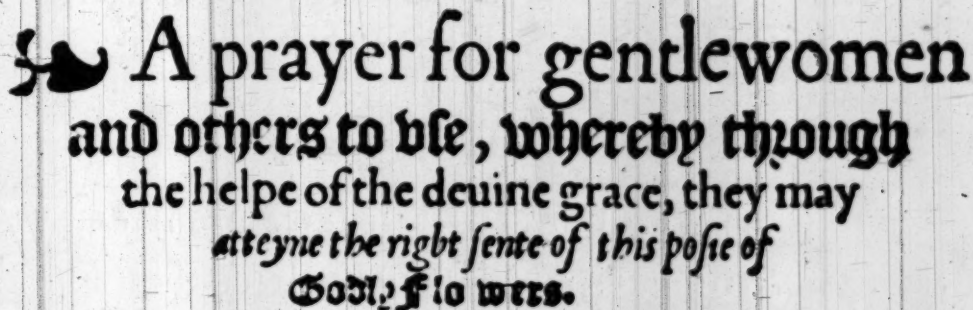 ❧ A prayer for gentlewomen
and others to vſe, whereby through
the helpe of the deuine grace, they may
atteyne the right ſente of this poſie of
Godly Flowers.